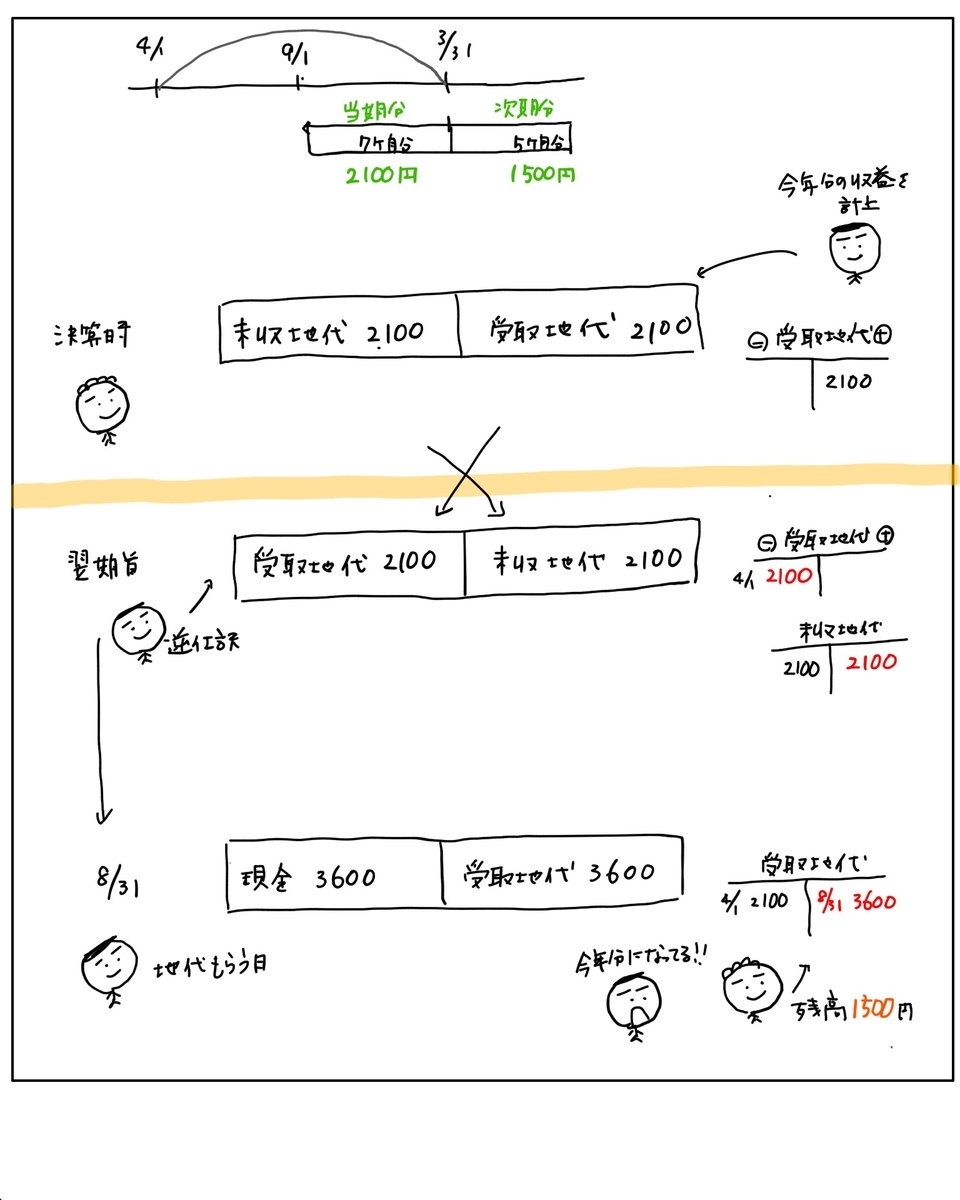 4/1
9/1
3/31
当期分 次期分
7ヶ月分 5ヶ月分
2100円 1500円
今年分の収益を
計上
決算時
未収地代 2100 受取地代 2100
⊖ 受取地代 ⊕
2100
翌期首
逆仕訳
受取地代 2100 未収地代 2100
⊖ 受取地代 ⊕
4/1 2100
未収地代
2100 2100
8/31
地代もらう日
現金 3600 受取地代 3600
受取地代
4/1 2100 8/31 3600
今年分になってる!!
残高1500円